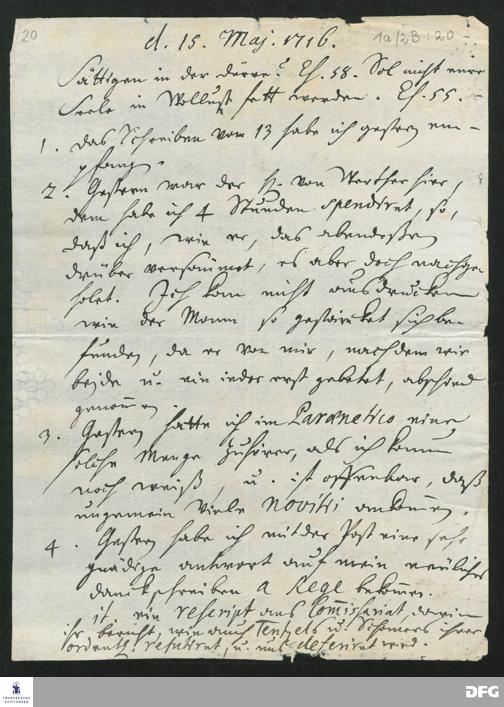 20
d. 15. Maj. 1716.
1a/2B:20
Sättigen in der Dürre? Es. 58. Sol nicht eure
Seele in Wollust fett werden. Es. 55.
1. Das Schreiben vom 13 habe ich gestern em-
pfangen.
2. Gestern war der H. von Werther hier,
dem habe ich 4 Stunden spendiret, so,
daß ich, wie er, das abendeßen
drüber versäumet, es aber doch nachge-
holet. Ich kan nicht ausdrucken
wie der Mann so gestärcket sich be-
funden, da er von mir, nachdem wir
beide u. ein ieder erst gebetet, abschied
genommen.
3. Gestern hatte ich im Paraenetico eine
solche Menge Zuhörer, als ich kaum
noch weiß, u. ist offenbar, daß
ungemein viele novitii ankommen.
4. Gestern habe ich mit der Post eine sehr
gnädige antwort auf mein neuliches
danckschreiben a Rege bekommen.
it. ein rescript ans Commissariat, darinn
ihr bericht, wie auch Tentzels u. Schomers ihrer
ordentl. refutiret, u. uns deferiret wird.
FRANCKESCHE
STIFTUNGEN
DFG